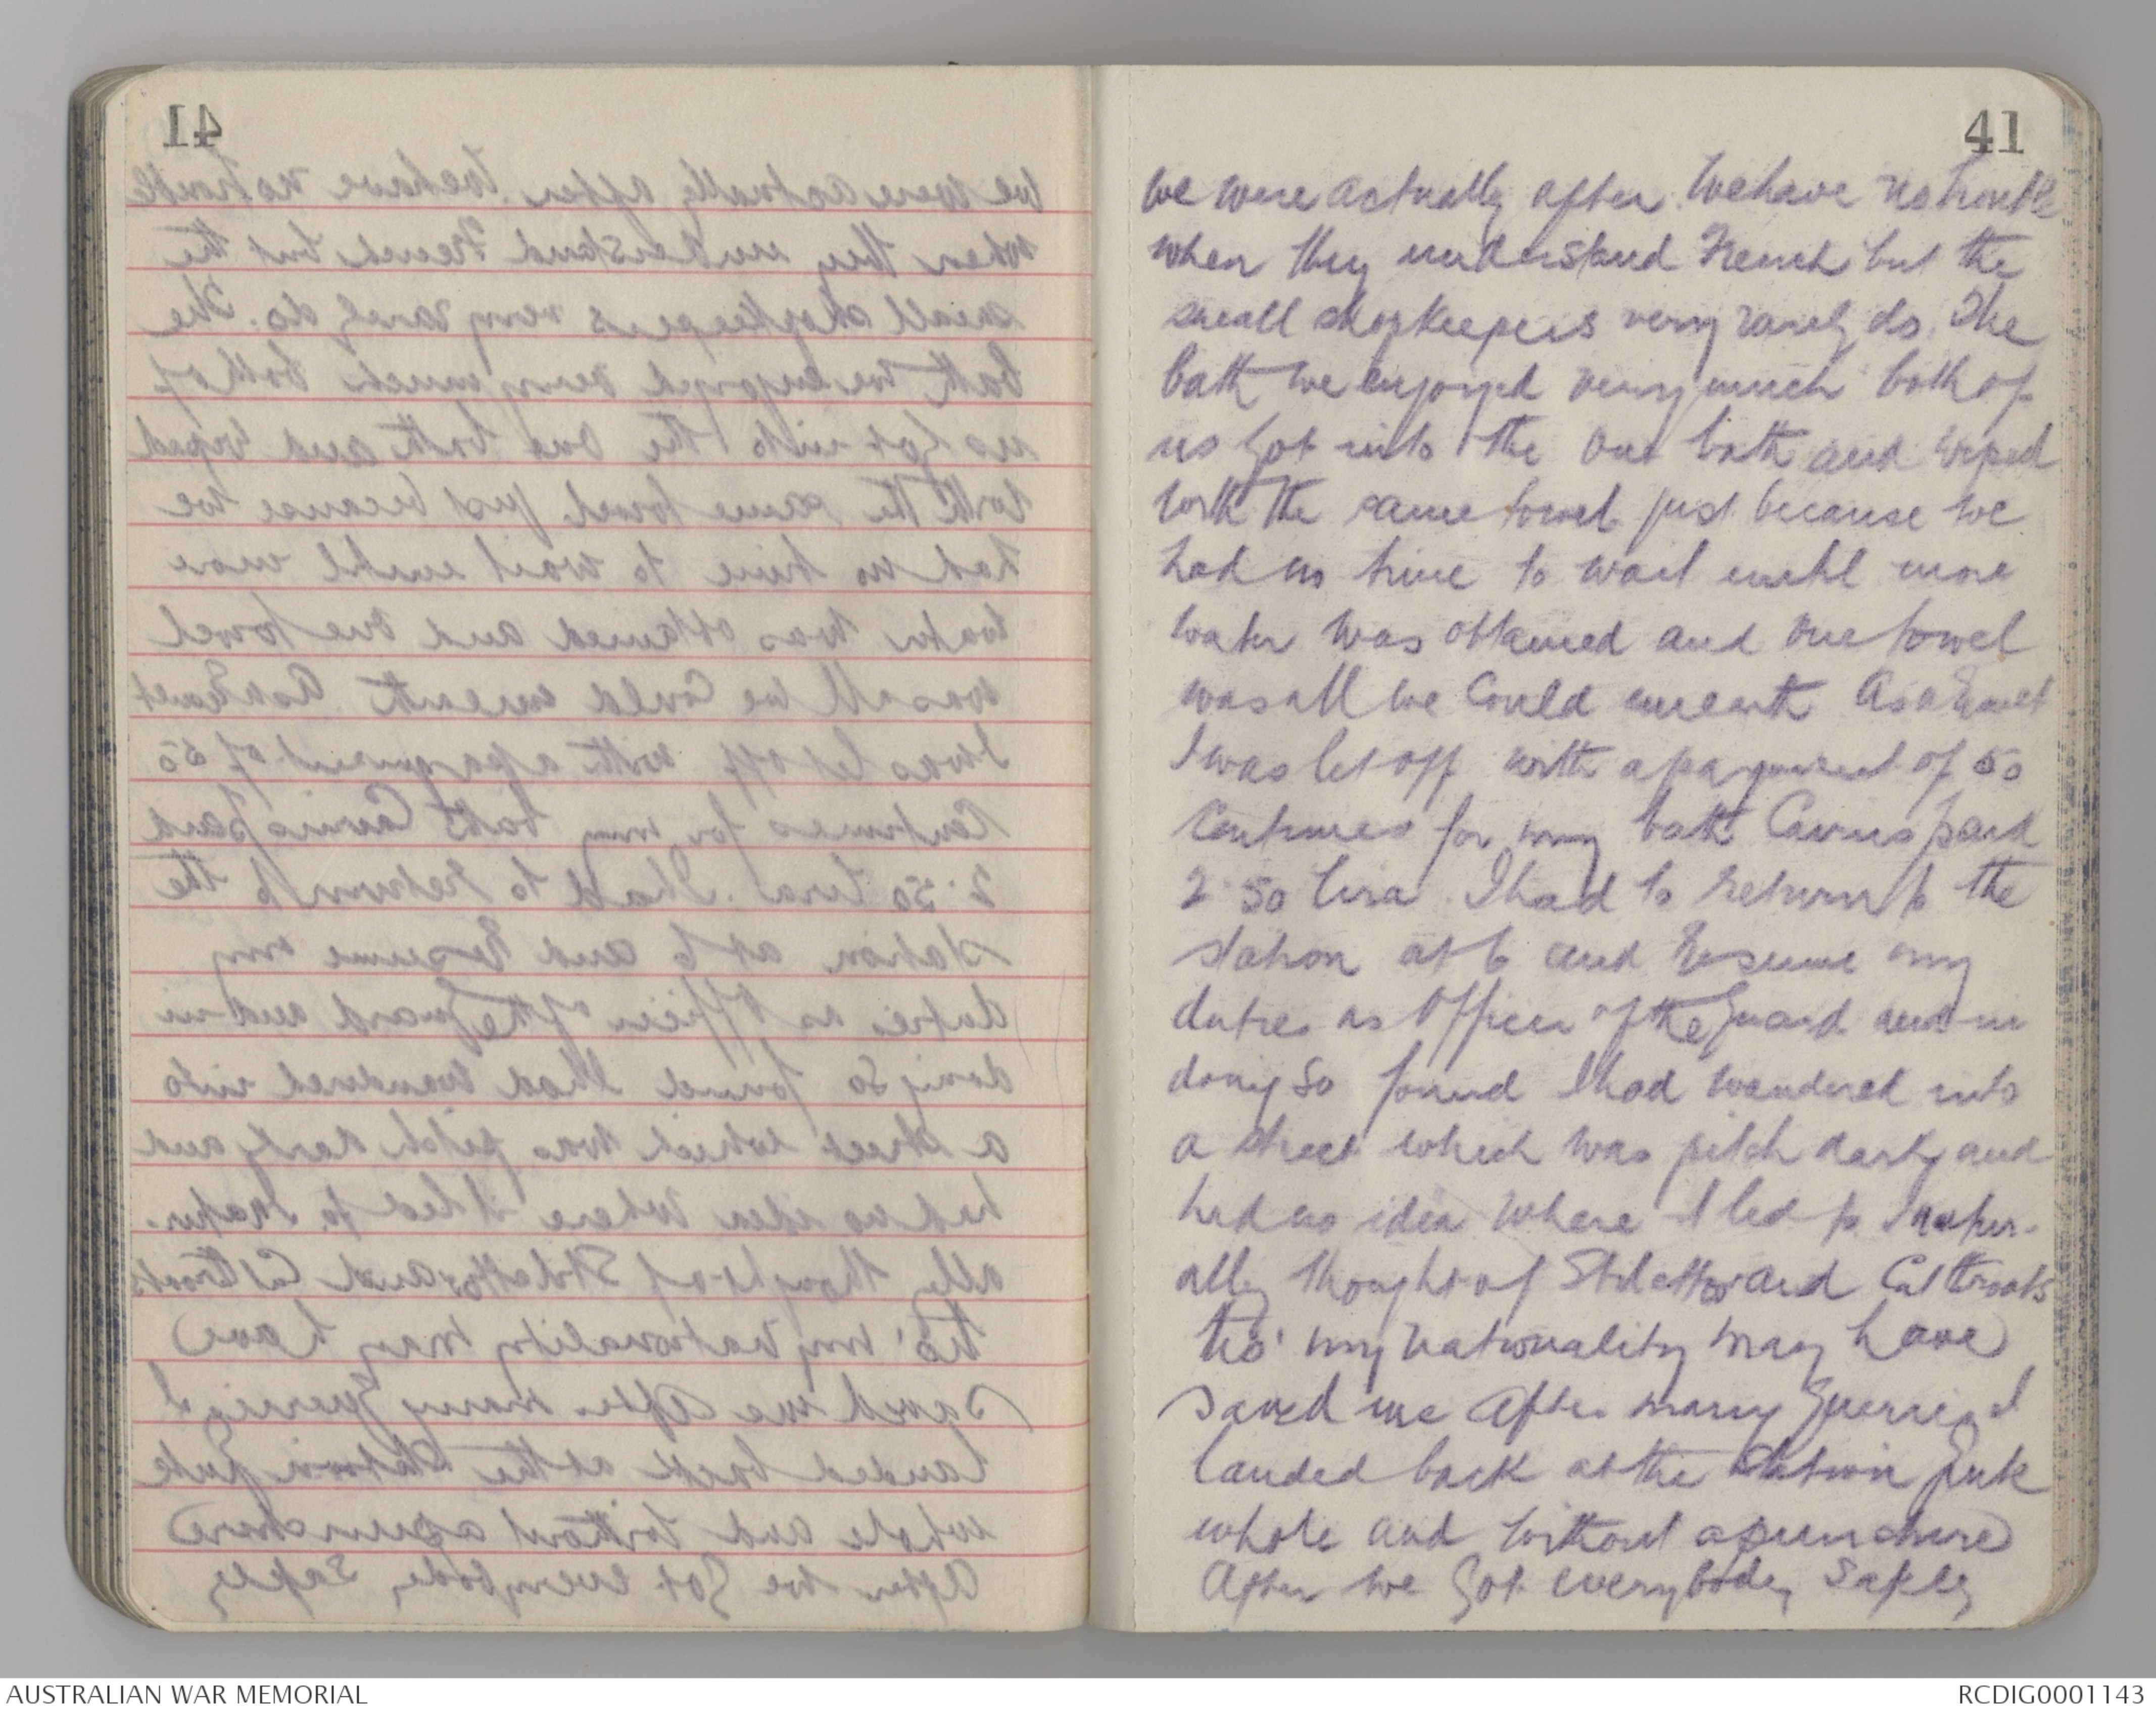 41
we were actually after. We have no trouble
when they understand French but the
small shopkeepers very rarely do. The
bath we enjoyed very much both of
us got into the one bath and wiped
with the same towel just because we
had no time to wait until more
water was obtained and one towel
was all we could unearth As a Guest
I was let off with a payment of 50
Centimes for my bath Cairns paid
2.50 lira. I had to return to the
station at 6 and resume my
duties as Officer of the Guard and in
doing so found I had wandered into
a street which was pitch dark and
had no idea where it led to
ally thought of Stilettos and Cut throats
tho' my nationality may have
saved me After many I
landed back at the station quite
whole and without a puncture
After we got everybody safely
AUSTRALIAN WAR MEMORIAL
RCDIG0001143